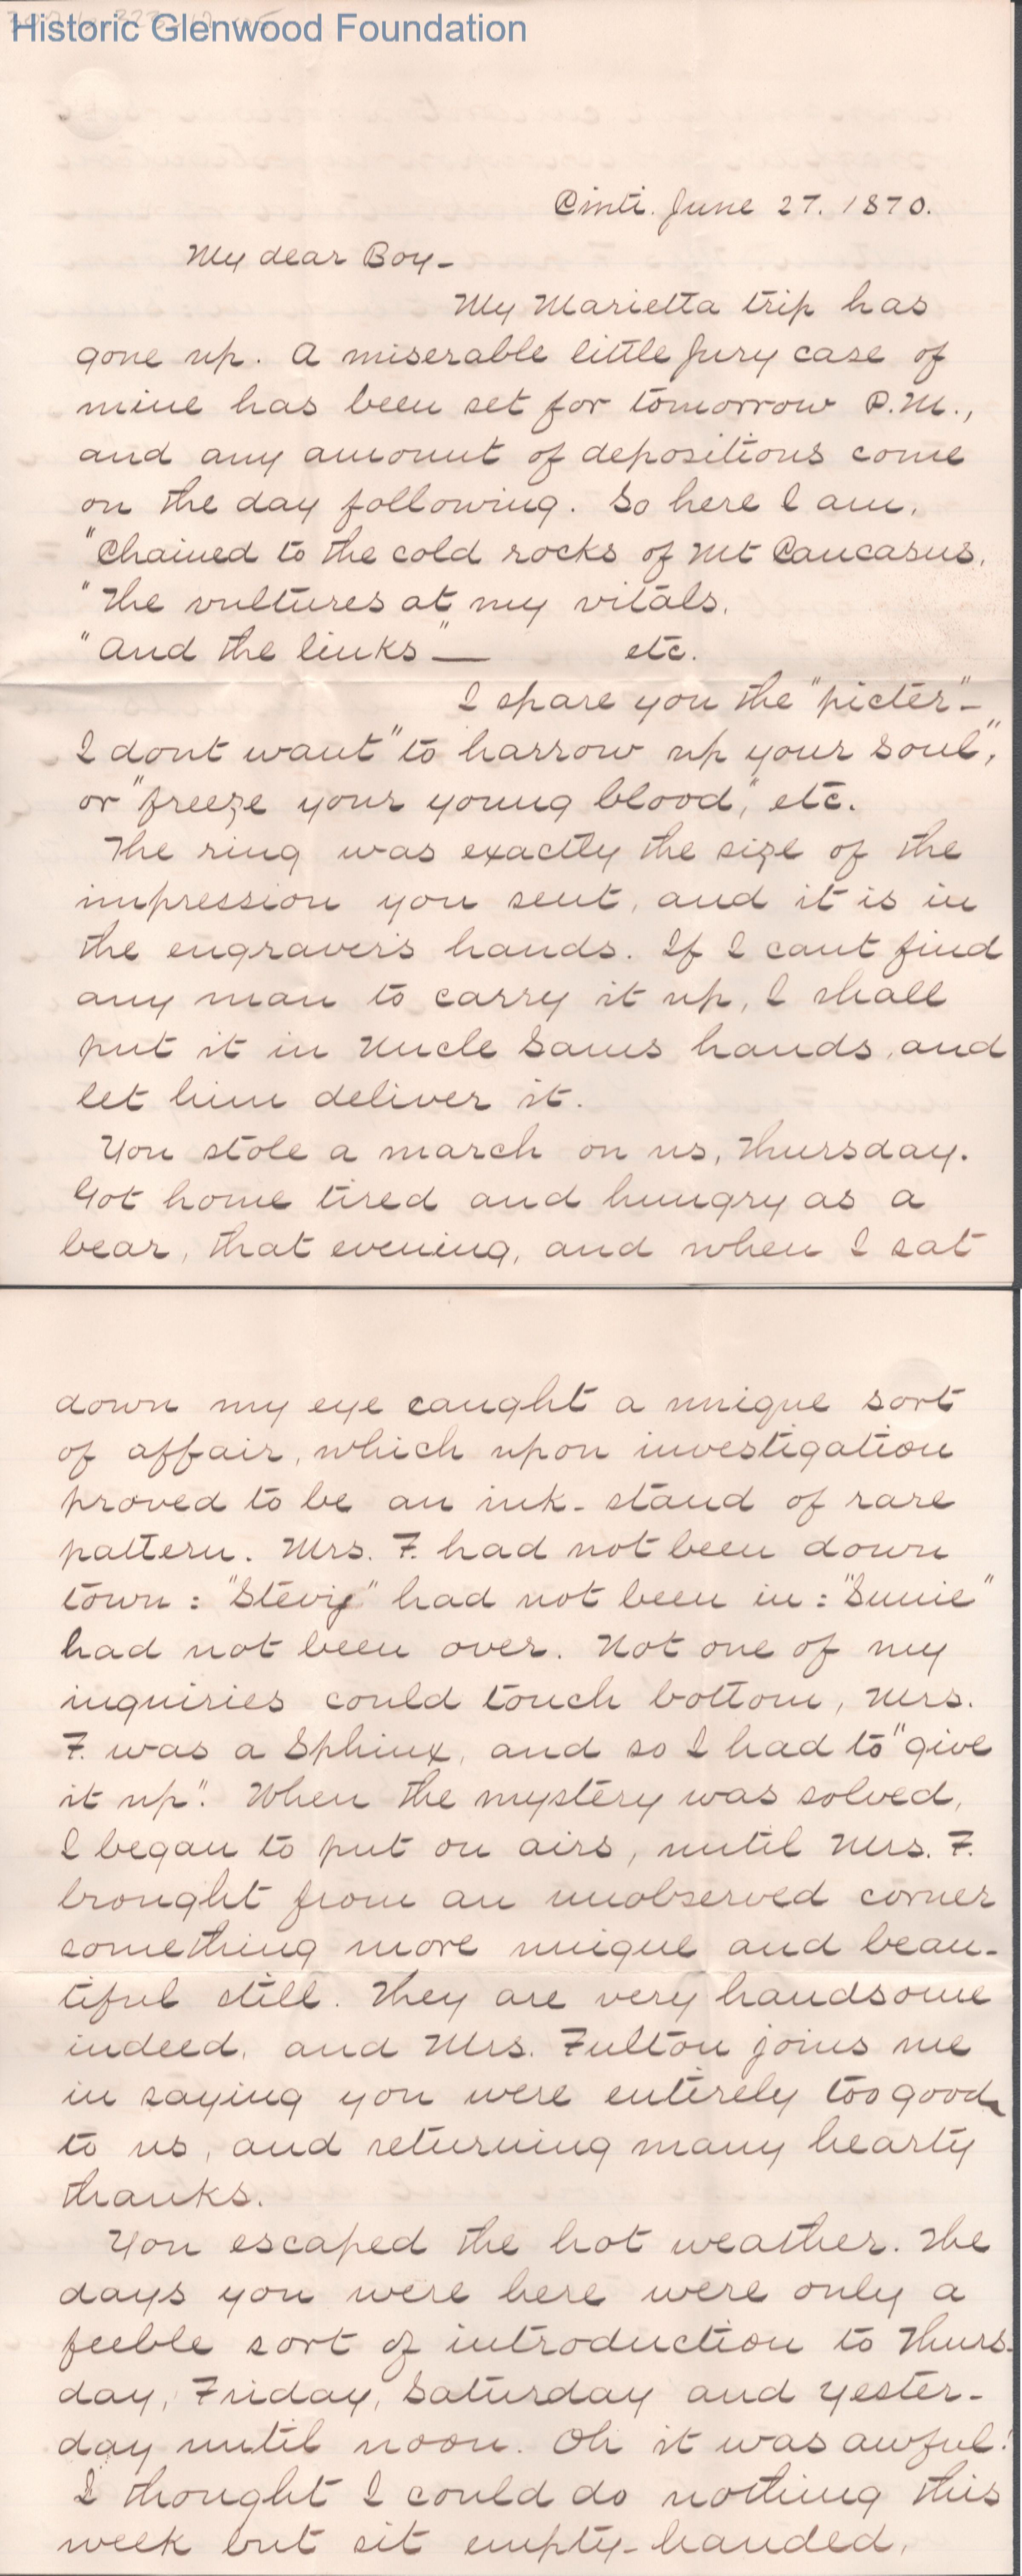 Historic Glenwood Foundation
Cinti. June 27. 1870.
My dear Boy -
My Marietta trip has
gone up. A miserable little jury case of
mine has been set for tomorrow P.M.,
and any amount of depositions come
on the day following. So here I am,
"Chained to the cold rocks of Mt Caucasus,
"The vultures at my vitals,
"And the links" — etc.
I spare you the "picter" -
I dont want "to harrow up your soul",
or "freeze your young blood", etc.
The ring was exactly the size of the
impression you sent, and it is in
the engraver's hands. If I cant find
any man to carry it up, I shall
put it in Uncle Sams hands, and
let him deliver it.
You stole a march on us, Thursday.
Got home tired and hungry as a
bear, that evening, and when I sat
down my eye caught a unique sort
of affair, which upon investigation
proved to be an ink-stand of rare
pattern. Mrs. F. had not been down
town: "Stevy" had not been in: "Sunie"
had not been over. Not one of my
inquiries could touch bottom, Mrs.
F. was a Sphinx, and so I had to "give
it up". When the mystery was solved,
I began to put on airs, until Mrs. F.
brought from an unobserved corner
something more unique and beau-
tiful still. They are very handsome
indeed, and Mrs. Fulton joins me
in saying you were entirely too good
to us, and returning many hearty
thanks.
You escaped the hot weather. The
days you were here were only a
feeble sort of introduction to Thurs-
day, Friday, Saturday and yester-
day until noon. Oh it was awful!
I thought I could do nothing this
week but sit empty-handed,